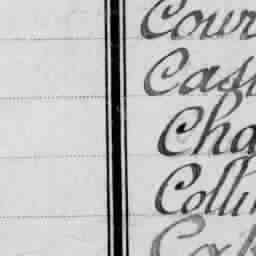 Cour
Cas
Cha
Colli